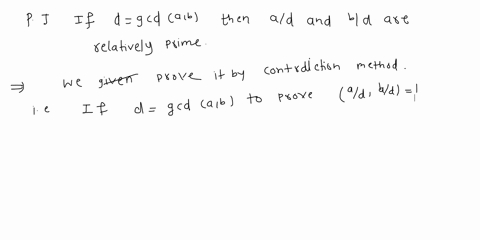 P J If d = gcd (a,b) then a/d and b/d are
relatively prime.
⇒ We given prove it by contrdiction method.
i.e If d = gcd (a,b) to prove (a/d, b/d) = 1